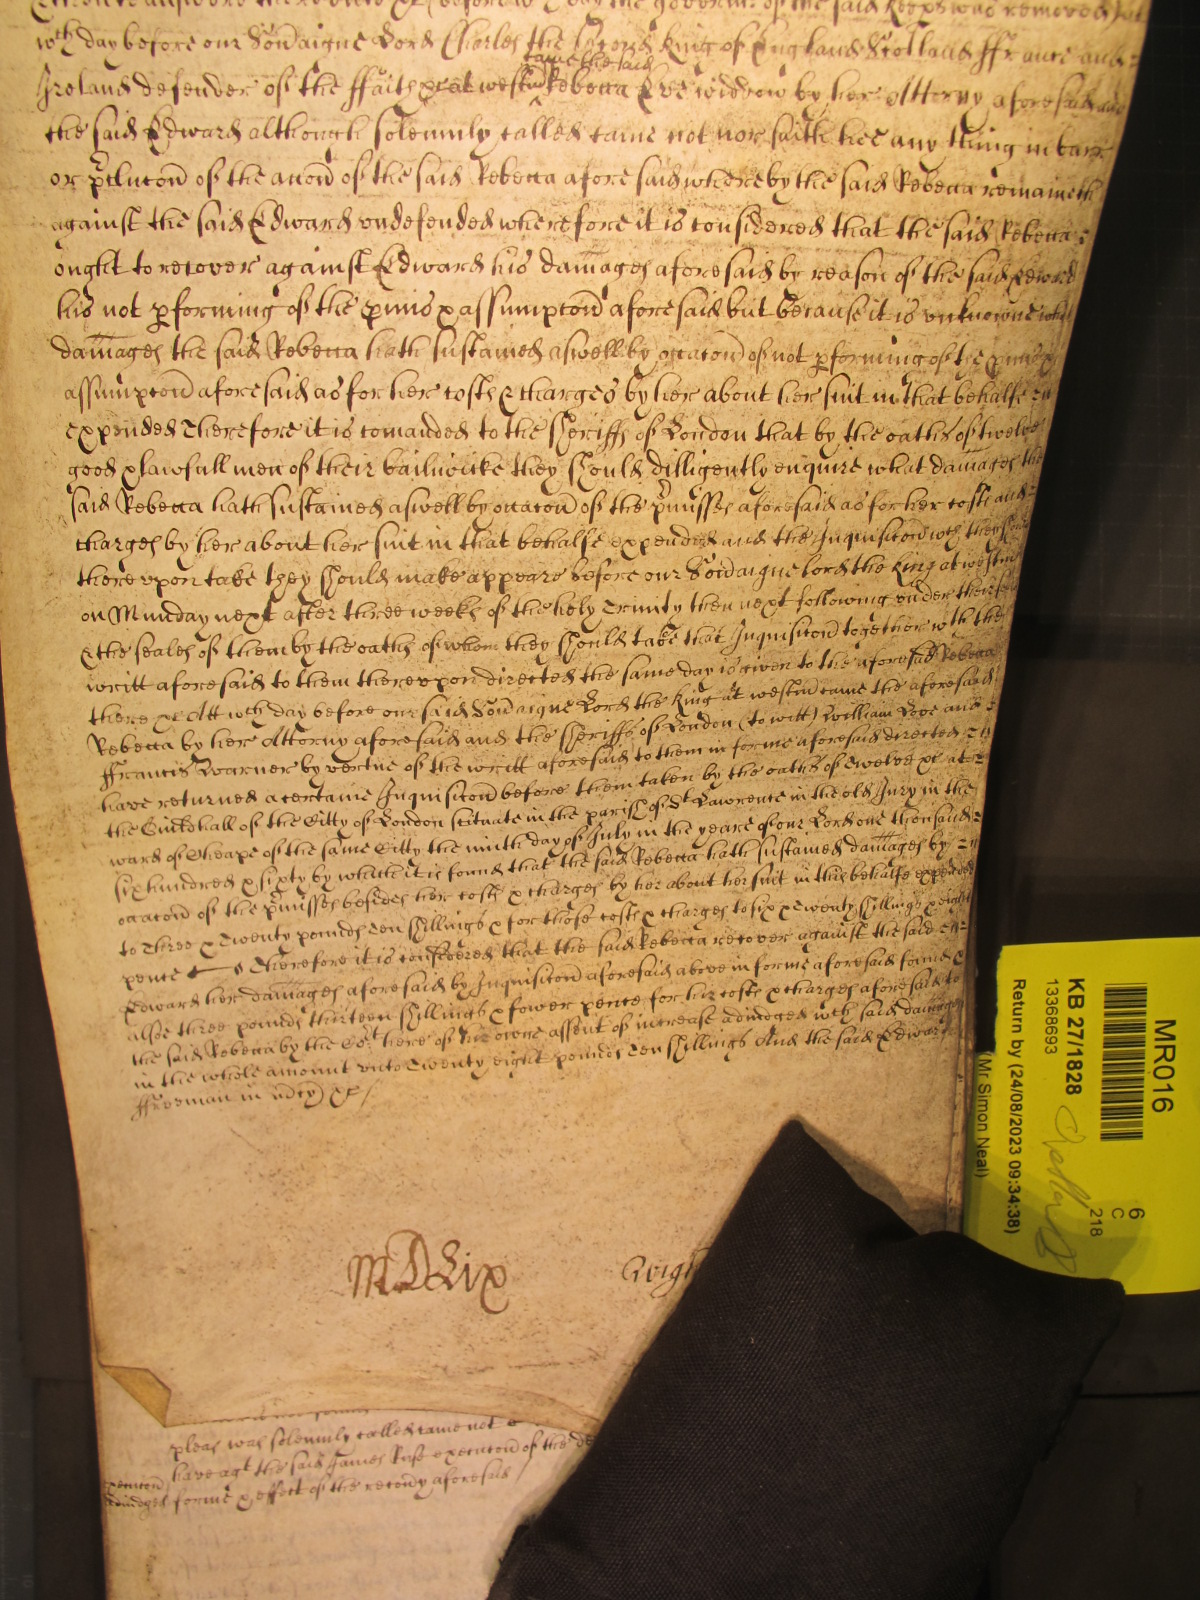 day the governm^t of the said keeps was removed
w^ch day before our Sov̄aigne Lord Charles the second King of England Scotland ffrance and
Ireland defender of the ffaith &c at westm̄ came the said Rebecca Eve widdow by her Attorny aforesaid and
the said Edward although solemnly called came not nor saith hee any thing in barr
or p̄clucōn of the accōn of the said Rebecca aforesaid whereby the said Rebecca remaineth
against the said Edward undefended wherefore it is considered that the said Rebecca
ought to recover against Edward his damages aforesaid by reason of the said Edward
his not pforming of the p̄mis & assumpcōn aforesaid but because it is unknowne what
damages the said Rebecca hath sustained aswell by occacōn of not pforming of the p̄mis &
assumpcōn aforesaid as for her costs & charges by her about her suit in that behalfe
expended Therefore it is comanded to the Sheriffs of London that by the oaths of twelve
good & lawfull men of their bailiwicke they should dilligently enquire what damages the
said Rebecca hath sustained aswell by occacōn of the p̄misses aforesaid as for her costs and
charges by her about her suit in that behalfe expended and the Inquisicōn w^ch they should
thereupon take they should make appeare before our Sov̄aigne lord the King at westm̄
on Munday next after three weeks of the holy Trinity then next following under their seales
& the seales of them by the oaths of whom they should take that Inquisicōn together with the
writt aforesaid to them thereupon directed the same day is given to the aforesaid Rebecca
there &c Att w^ch day before our said Sov̄aigne Lord the King at westm̄ came the aforesaid
Rebecca by her Attorny aforesaid and the Sheriffs of London (to witt) William Love and
ffrancis Warner by vertue of the writt aforesaid to them in forme aforesaid directed
have returned a certaine Inquisicōn before them taken by the oaths of Twelve &c at
the Guildhall of the Citty of London scituate in the parish of S^t Lawrence in the old Jury in the
ward of Cheape of the same Citty the ninth day of July in the yeare of our Lord one thousand
six hundred & sixty by which it is found that the said Rebecca hath sustained damages by
occacōn of the p̄misses besides her costs & charges by her about her suit in this behalfe expended
to Three & Twenty pounds Ten shillings & for those costs & charges to six & Twenty shillings & eight
pence Therefore it is considered that the said Rebecca recover against the said
Edward her damages aforesaid by Inquisicōn aforesaid above in forme aforesaid found &
alsoe three pounds thirteen shillings & fower pence for her costs & charges aforesaid to
the said Rebecca by the Co^rt here of her owne assent of increase adiudged w^ch said damages
in the whole amount unto Twenty eight pounds Ten shillings And the said Edward
ffreeman in m̄cy &c /
MDLix
Wigh
pleas was solemnly called came not
have ag^t the said James Ruse execucōn of the
execucōn
adiudged forme & effect of the recov̄y aforesaid
MR016
6
C
218
KB 27/1828
13368693
Return by (24/08/2023 09:34:38)
(Mr Simon Neal)